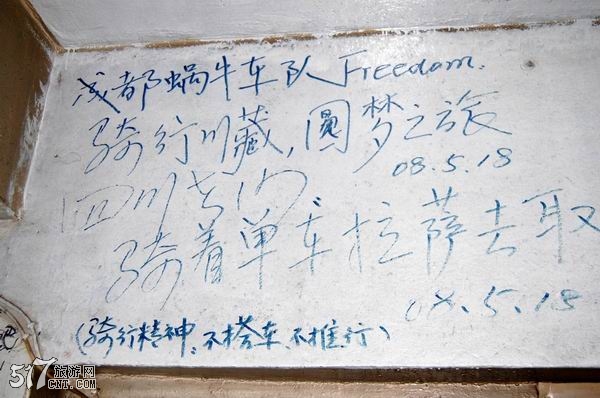 成都蜗牛车队 Freedom.
骑行川藏,圆梦之旅
08.5.18
四川
骑着单车拉萨去取
08.5.18
(骑行精神、不搭车、不推行)
517旅游网
CXT.com